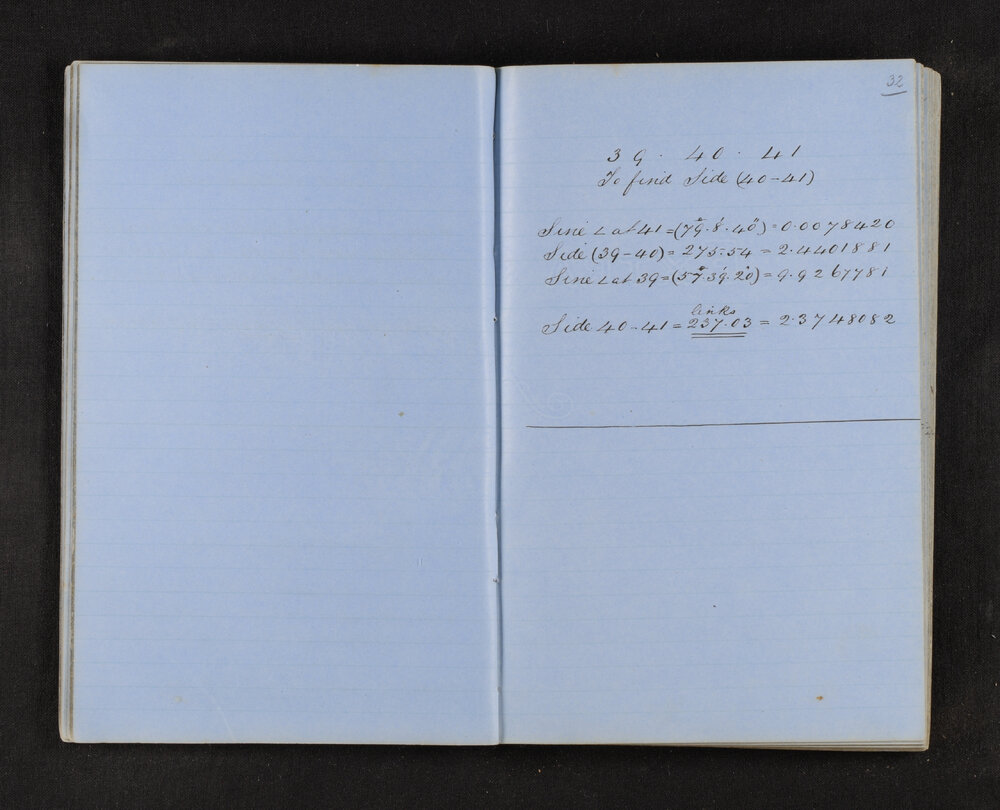 32
39 . 40 . 41
To find Side (40-41)
Sine ∠ at 41 = (79°.8'.40") = 0.0078420
Side (39-40) = 275.54 = 2.4401881
Sine ∠ at 39 = (57°.39'.20") = 9.9267781
links
Side 40-41 = 237.03 = 2.3748082